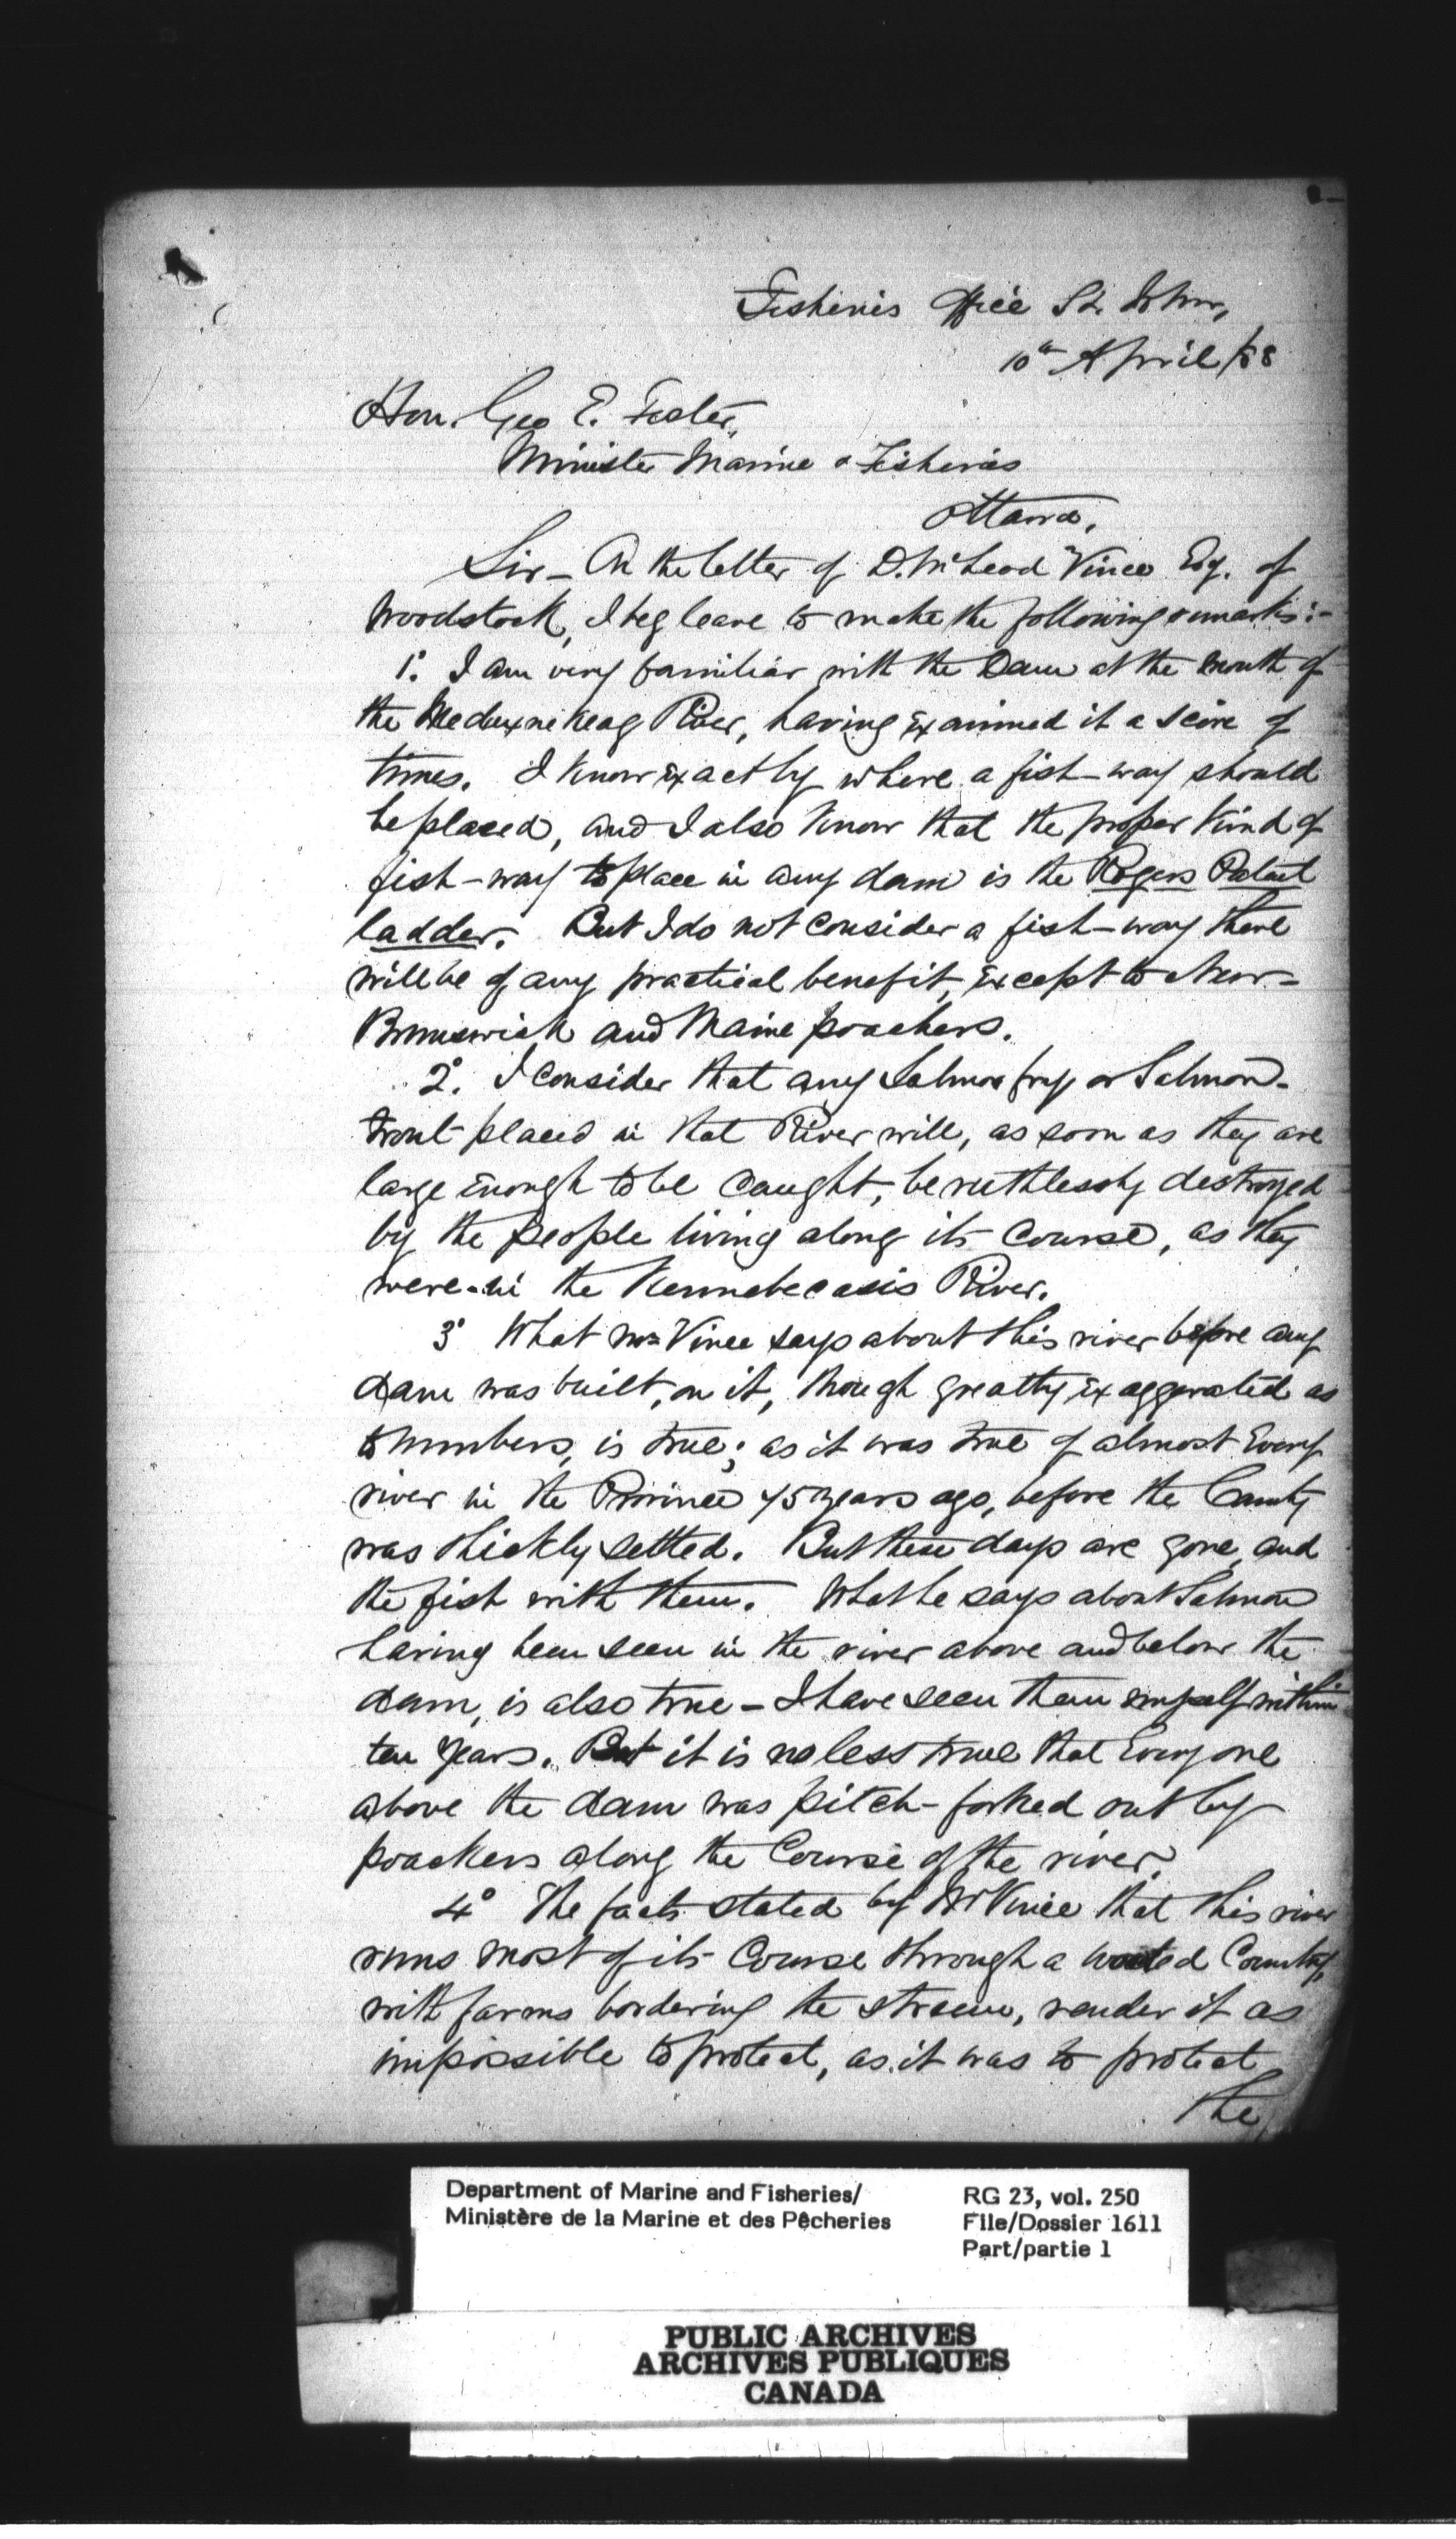 Fisheries Office St. John,
10th April /88
Hon. Geo E. Foster,
Minister Marine & Fisheries
Ottawa,
Sir – On the letter of D. McLeod Vince Esq. of
Woodstock, I beg leave to make the following remarks:–
1º. I am very familiar with the Dam at the mouth of
the Meduxnekeag River, having examined it a score of
times. I know exactly where a fish-way should
be placed, and I also know that the proper kind of
fish-way to place in any dam is the Rogers Patent
ladder. But I do not consider a fish-way there
will be of any practical benefit, except to New-
Brunswick and Maine poachers.
2º. I consider that any Salmon fry or Salmon-
trout placed in that River will, as soon as they are
large enough to be caught, be ruthlessly destroyed
by the people living along its course, as they
were in the Kennebecasis River.
3º What Mr Vince says about this river before any
dam was built, on it, though greatly exaggerated as
to numbers, is true; as it was true of almost every
river in the Province 45 years ago, before the County
was thickly settled. But these days are gone, and
the fish with them. What he says about Salmon
having been seen in the river above and below the
dam, is also true – I have seen them myself within
ten years. But it is no less true that every one
above the dam was pitch-forked out by
poachers along the Course of the river.
4º The facts stated by Mr Vince that this river
runs most of its Course through a wooded Country,
with farms bordering the stream, render it as
impossible to protect, as it was to protect
the
Department of Marine and Fisheries/
Ministère de la Marine et des Pêcheries
RG 23, vol. 250
File/Dossier 1611
Part/partie 1
PUBLIC ARCHIVES
ARCHIVES PUBLIQUES
CANADA